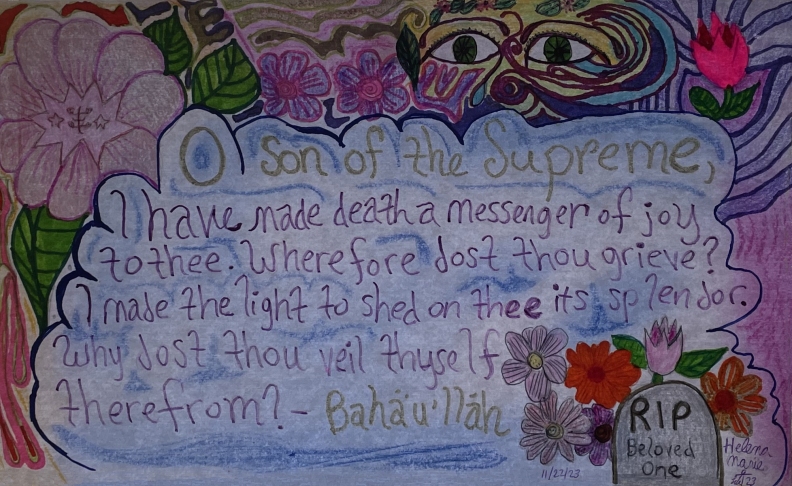 O son of the Supreme,
I have made death a messenger of joy
to thee. Wherefore dost thou grieve?
I made the light to shed on thee its splendor.
Why dost thou veil thyself
therefrom? - Bahá'u'lláh
RIP
Beloved
One
11/22/23
Helena
Marie